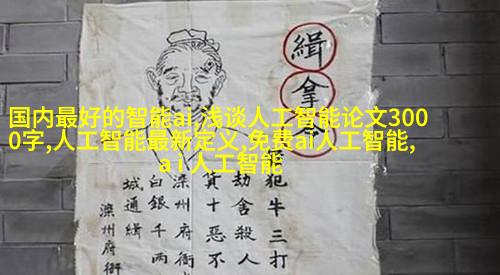 国内最好的智能ai,浅谈人工智能论文300
0字,人工智能最新定义,免费ai人工智能,
a i 人工智能
緝拿
犯牛三打
劫舍殺人
箕十惡不
滦州府衙
白銀千兩
城通緝
滦州府衙